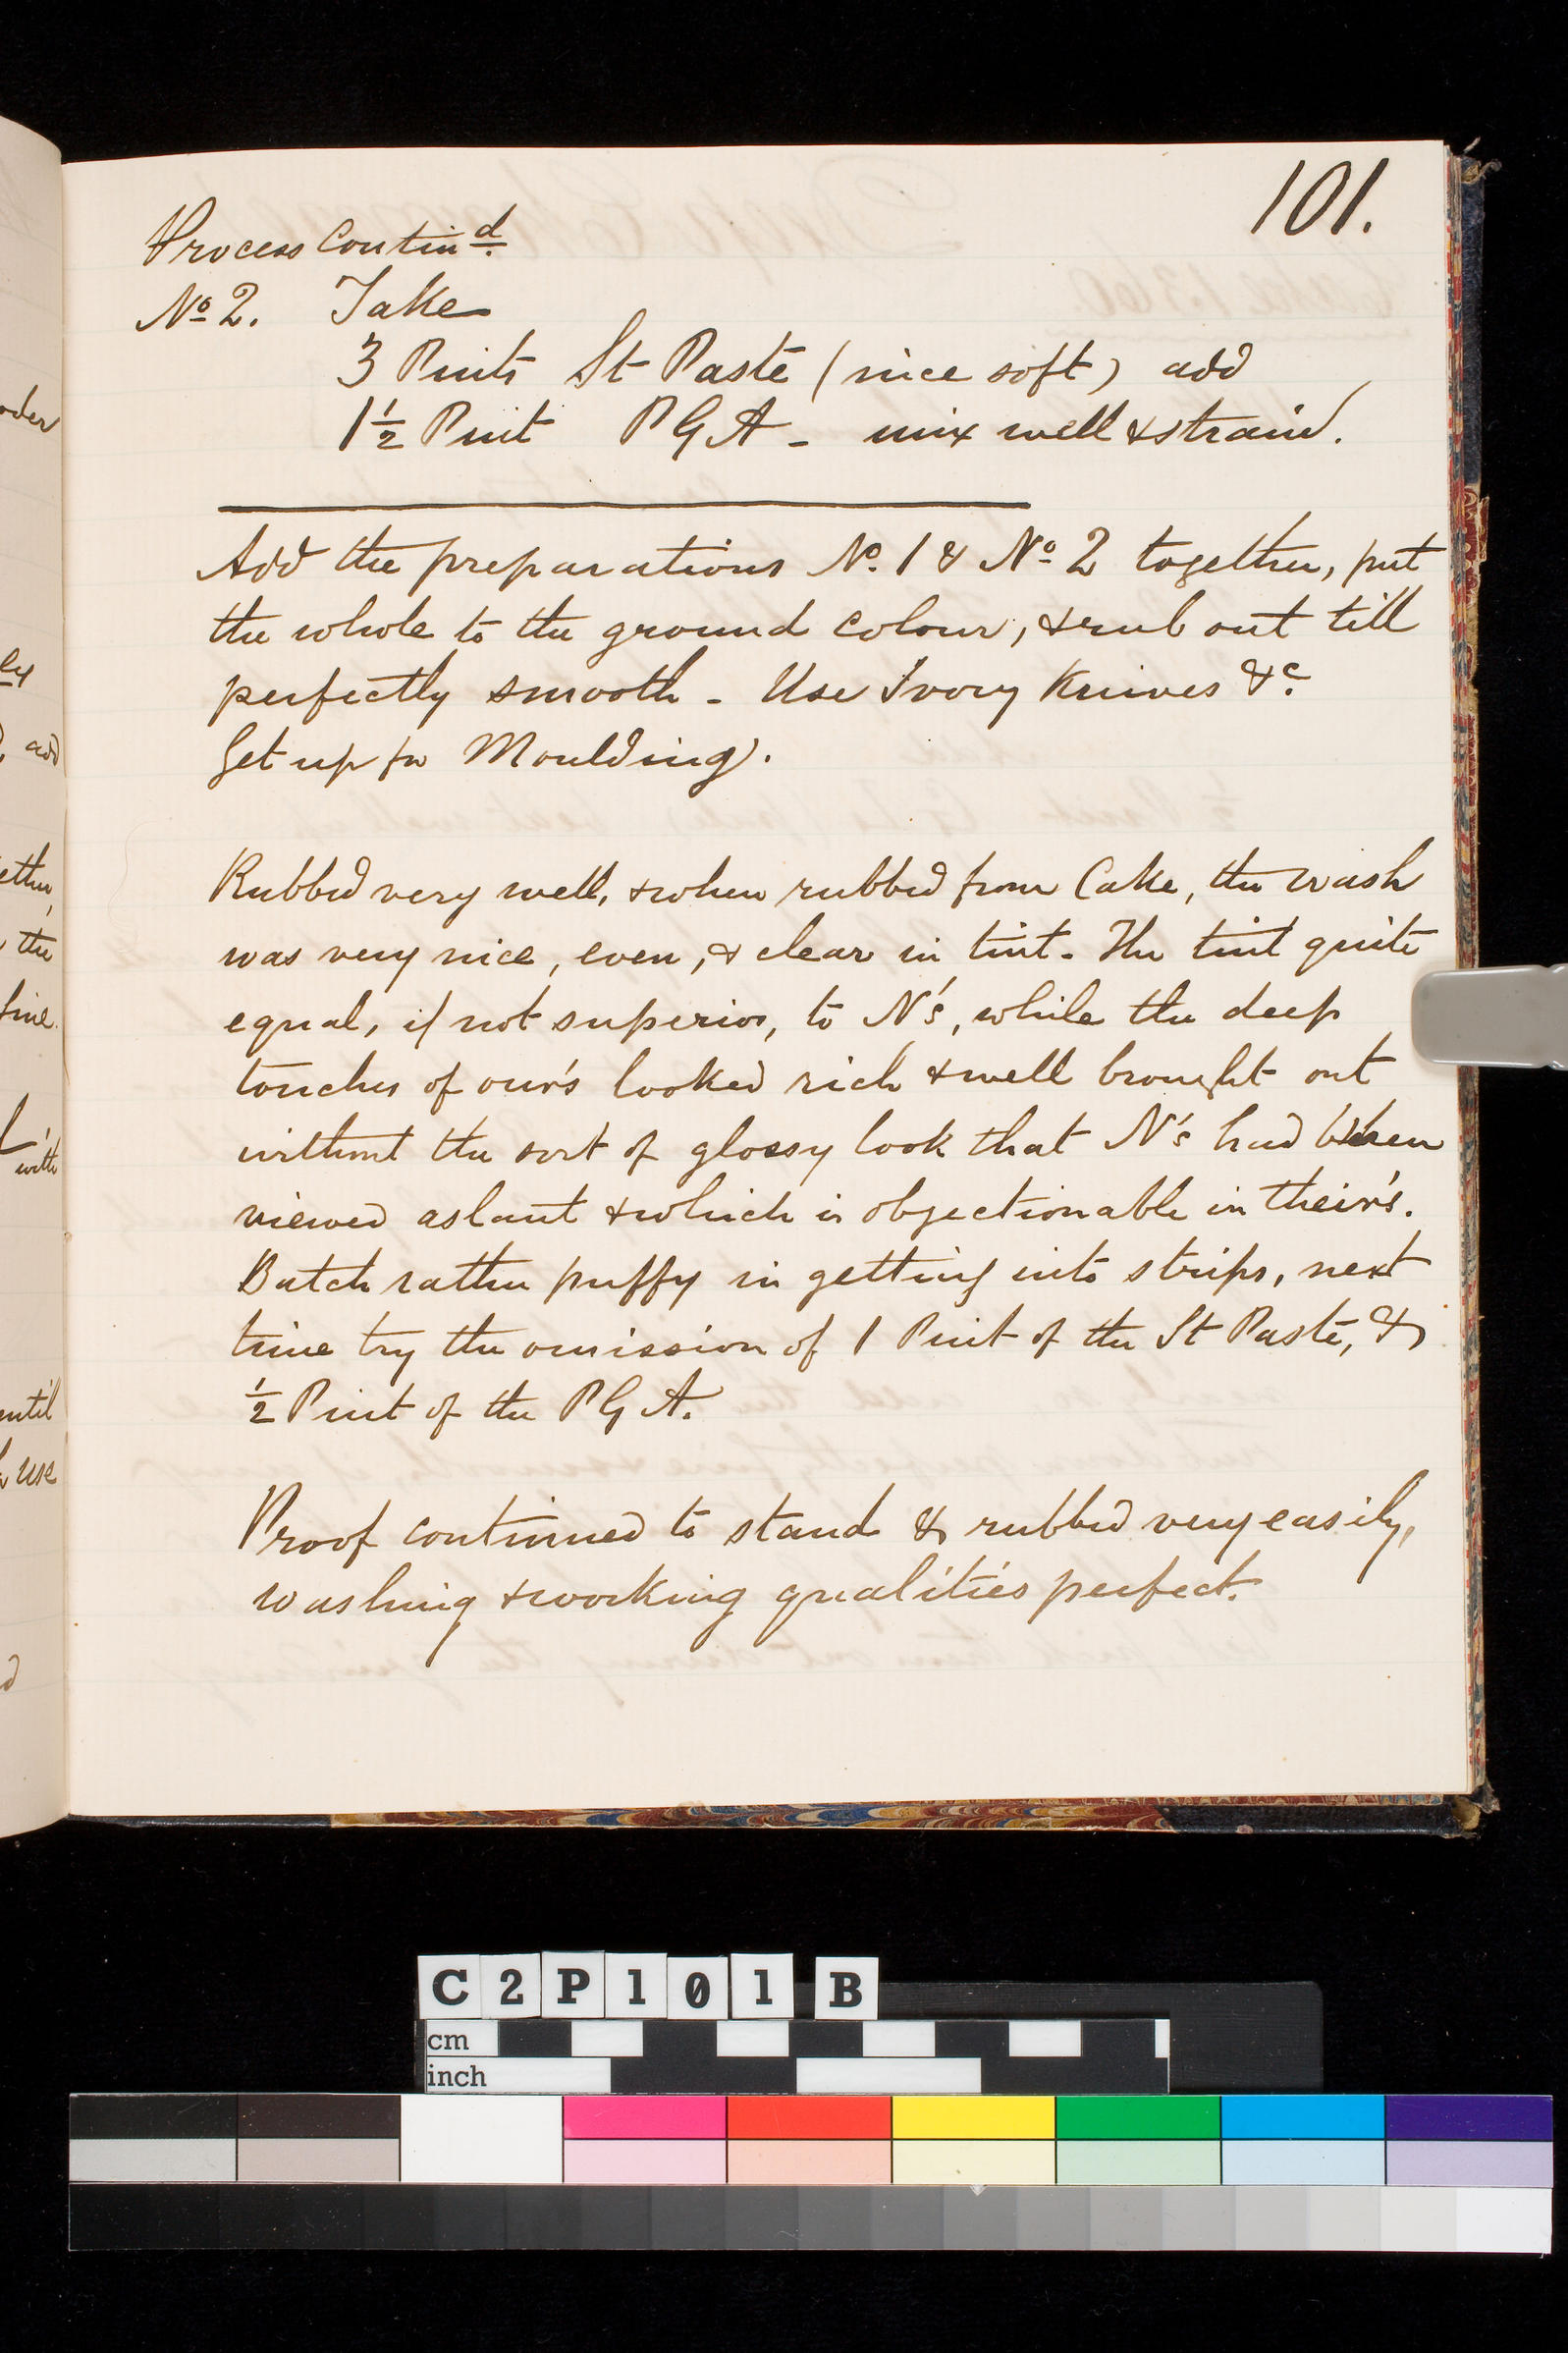 101.
Process Contin.d
No 2. Take
3 Pints St Paste (nice soft) add
1½ Pint P G A - mix well & strain.
Add the preparations No. 1 & No 2 together, put
the whole to the ground colour, & rub out till
perfectly smooth - Use Ivory Knives &c.
Get up for Moulding.
Rubbed very well, & when rubbed from Cake, the wash
was very nice, even, & clear in tint. The tint quite
equal, if not superior, to N's, while the deep
touches of our's looked rich & well brought out
without the sort of glossy look that N's had when
viewed aslant & which is objectionable in their's.
Batch rather puffy in getting into strips, next
time try the omission of 1 Pint of the St Paste, &
½ Pint of the P G A.
Proof continued to stand & rubbed very easily,
washing & working qualities perfect.
add
the
fine.
with
until
use
C2P101 B
cm
inch